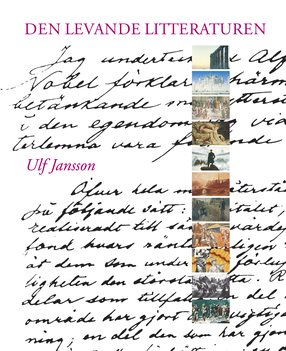 DEN LEVANDE LITTERATUREN
Jag undertecknad Alf
Nobel förklarar härm
betänkande min yttersta
i den egendom jag vid
terlemna vara följande
Ulf Jansson
Öfver hela min återstå
på följande sätt: kapitalet,
realiseradt till säkra värde
fond hvars ränta årligen
åt dem som under det förlup
ligheten den största nytta. R
delar som tillfalla: en del
område har gjort den vigtiga
ning; en del den som har gjort